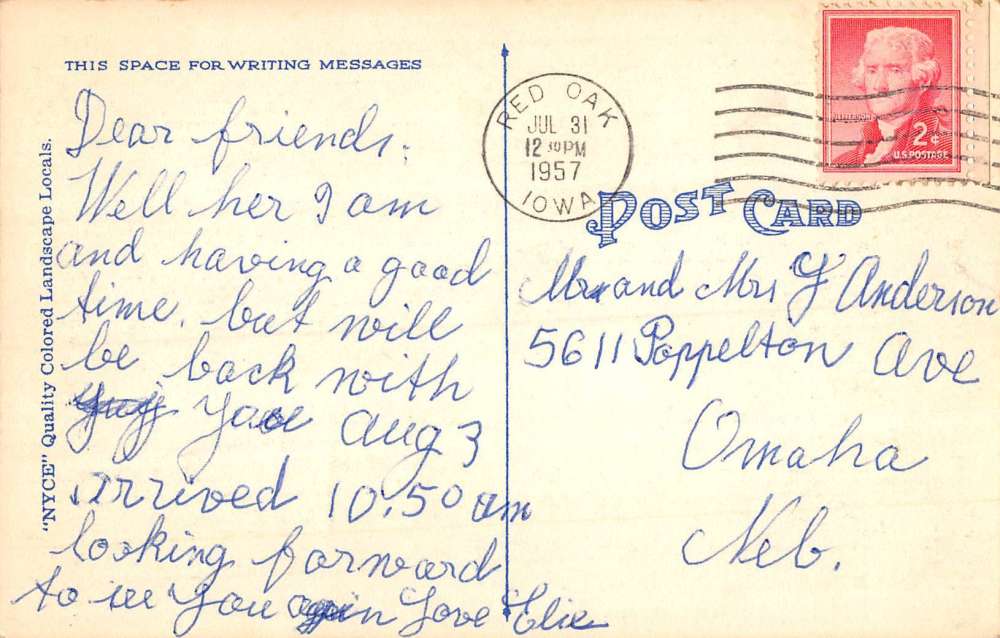 THIS SPACE FOR WRITING MESSAGES
Dear friends:
Well her I am
and having a good
time. but will
be back with
You Aug 3
arrived 10.50 am
looking forward
to see You again Love Elie
"NYCE" Quality Colored Landscape Locals.
RED OAK
JUL 31
12 30 PM
1957
IOWA
JEFFERSON
2¢
U.S. POSTAGE
POST CARD
Mr and Mrs Y Anderson
5611 Poppelton Ave
Omaha
Neb.